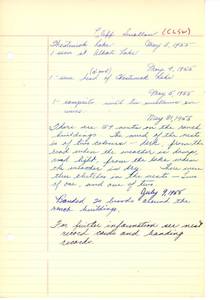 Cliff Swallow (CLSW)
Chestnook Lake May 3, 1955
1 seen at Lake
May 4, 1955
1 seen (dead) head of Lake
May 5, 1955
1 - campsite with
May 31, 1955
There are 54 nests on the ranch
buildings. The mud of the nests
is of two colours - dark, from the
road when the weather is damp
and light, from the lake when
the weather is dry. There were
two clutches in the nests - one
of one, and one of two.
July 9, 1955
Banded 20 broods around the
ranch buildings.
For further information see nest
record cards and banding
records.